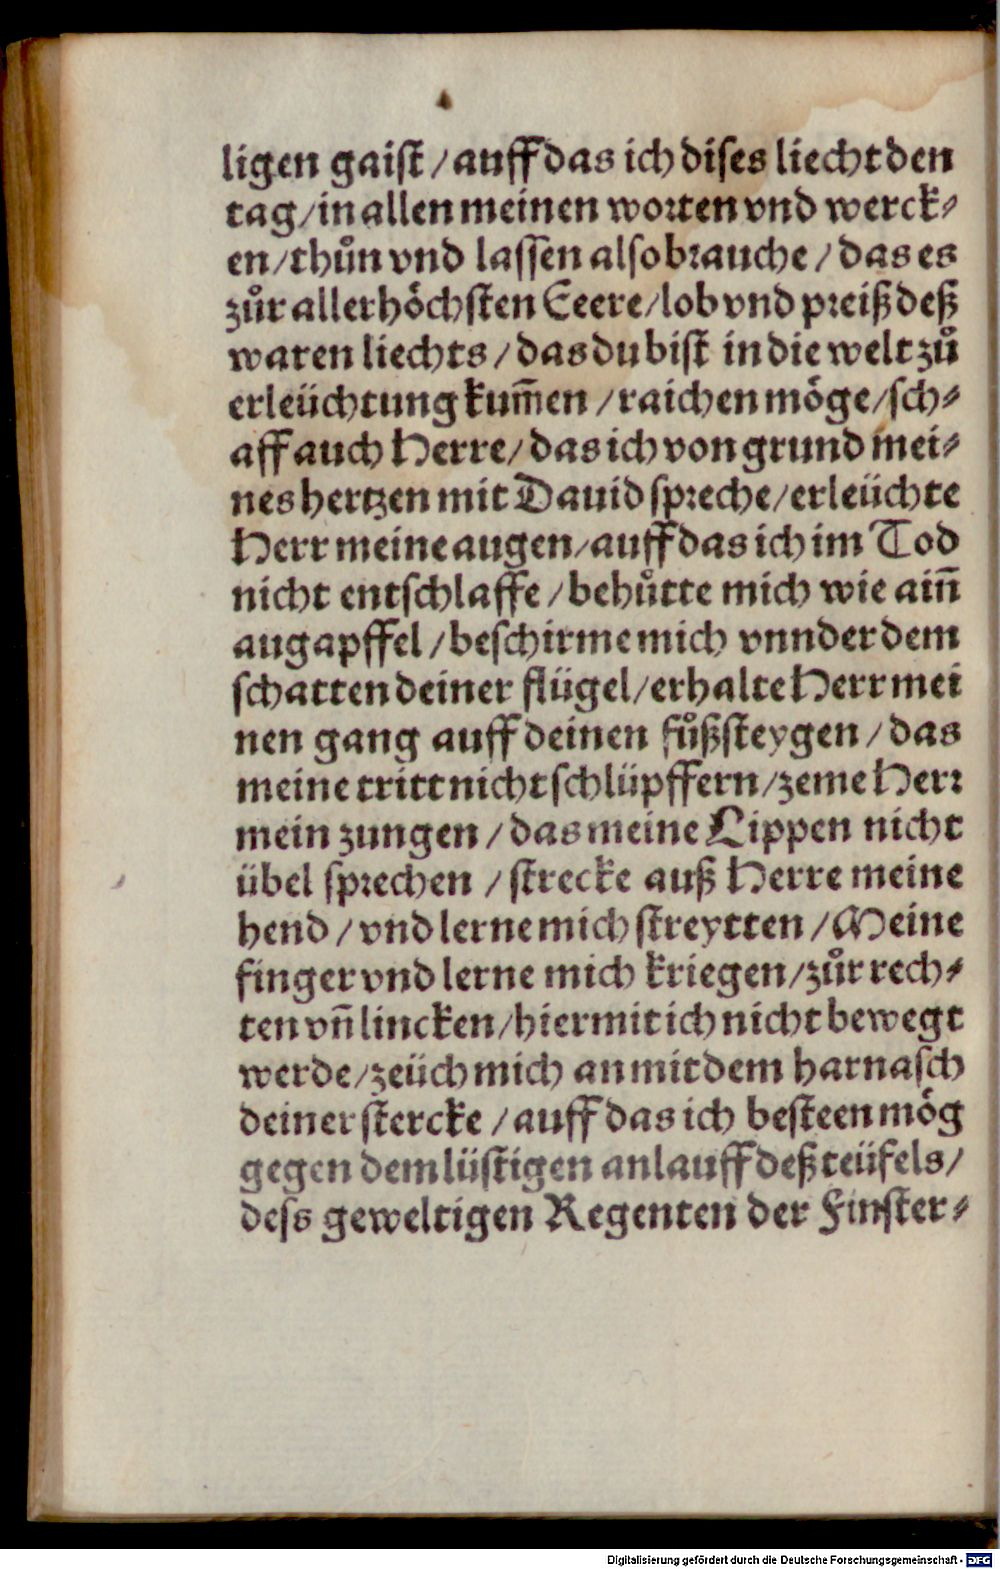 ligen gaiſt / auff das ich diſes liecht den
tag / in allen meinen worten vnd werck⸗
en / thůn vnd laſſen alſo brauche / das es
zůr allerhöchſten Eeere / lob vnd preiß deß
waren liechts / das du biſt in die welt zů
erleüchtung kum̄en / raichen möge / ſch⸗
aff auch Herre / das ich von grund mei⸗
nes hertzen mit Dauid ſpreche / erleüchte
Herr meine augen / auff das ich im Tod
nicht entſchlaffe / behůtte mich wie ain̄
augapffel / beſchirme mich vnnder dem
ſchatten deiner flügel / erhalte Herr mei
nen gang auff deinen fůßſteygen / das
meine tritt nicht ſchlüpffern / zeme Herr
mein zungen / das meine Lippen nicht
übel ſprechen / ſtrecke auß Herre meine
hend / vnd lerne mich ſtreytten / Meine
finger vnd lerne mich kriegen / zůr rech⸗
ten vn̄ lincken / hiermit ich nicht bewegt
werde / zeüch mich an mit dem harnaſch
deiner ſtercke / auff das ich beſteen mög
gegen dem lüſtigen anlauff deß teüfels /
deſs geweltigen Regenten der Finſter⸗
Digitalisierung gefördert durch die Deutsche Forschungsgemeinschaft - DFG